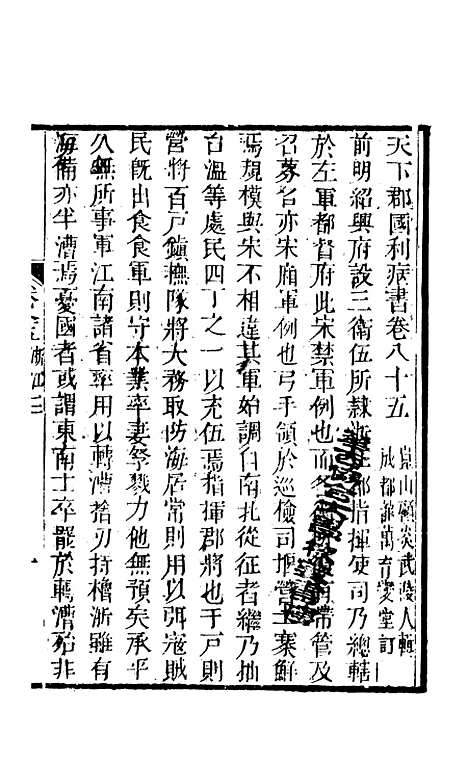 天下郡國利病書卷八十五
崑山顧炎武亭人輯
成都龍萬育燮堂訂
前明紹興府設三衛伍所隷浙江都指揮使司乃總轄
於左軍都督府此宋禁軍例也而各有帶管及
召募名亦宋廂軍例也弓手領於巡儉司堰營土寨鮮
焉規模與宋不相違其軍始調自南北從征者繼乃抽
台溫等處民四丁之一以充伍焉指揮郡將也千戸則
營將百戸鎭撫隊將大務取防海居常則用以弭寇賊
民旣出食食軍則守本業率妻孥戮力他無預矣承平
久無所事軍江南諸省率用以轉漕捨刃持櫓浙雖有
海備亦半漕焉憂國者或謂東南士卒罷於轉漕殆非
浙江三